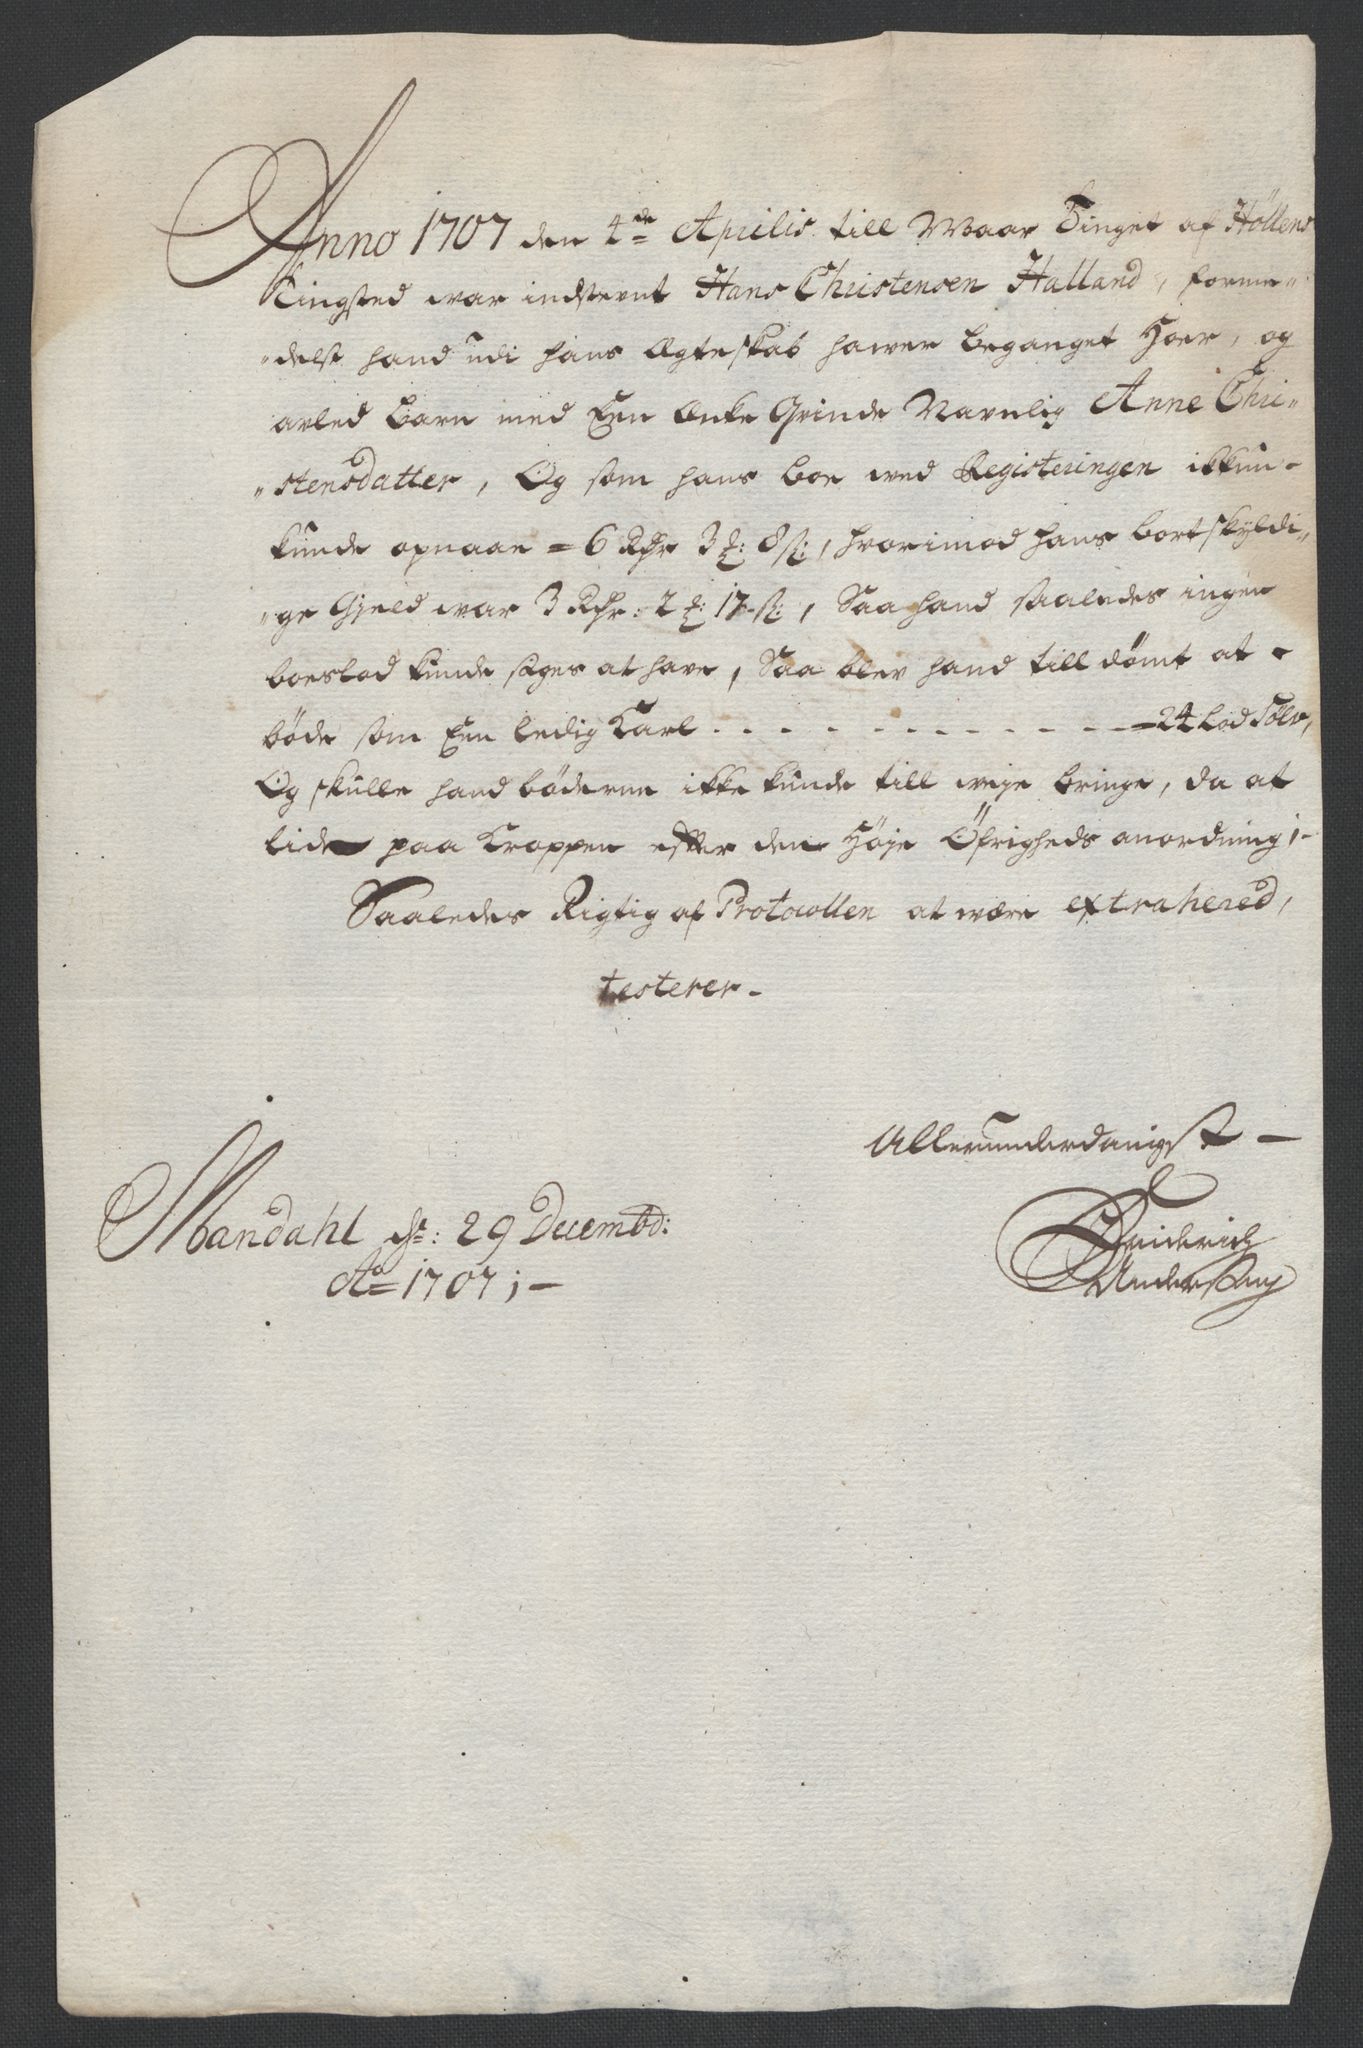 Anno 1707 den 4de Aprilis till Waar Tinget af Höllens
Tingsted war indstevnt Hans Christensen Halland, forme-
"delst hand udi hans Ægteskab hawer beganget Hoer, og
avled Barn med Een Enke Qvinde Navnlig Anne Chri-
"stensdatter, Og som hans boe wed Registeringen ikkun-
kunde opnaae = 6 Rdr 3 ʒ: 8 s:, hvorimod hans bortskyldi-
"ge Gjeld war 3 Rdr: 2 ʒ: 17 s:, Saa hand saaledes ingen
boeslod kunde siges at have, Saa blev hand till dømt at -
bøde som Een ledig Karl . - . - . - . - . - . - = 24 Lod Sölv,
Og skulle hand bøderne ikke kunde till weje bringe, da at
lide paa Kroppen efter den Høje Öfrigheds anordning;-
Saaledes Rigtig af Protocollen at være extrahered,
testerer -
Allerunderdanigst -
Mandahl dn: 29 Decembr:
Ao = 1707;-
Friderich
Undersen